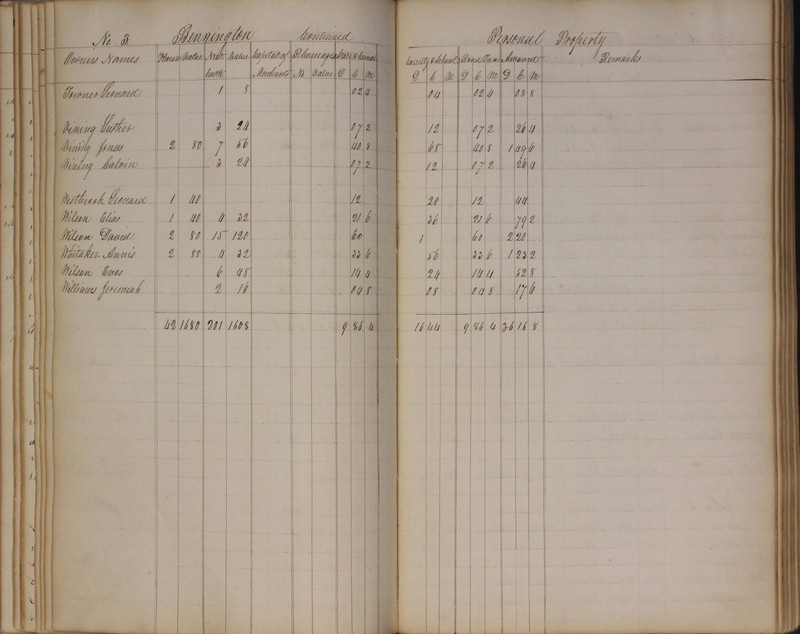 No 3. Bennington Continued Personal Property
Owners Names Horses Value Neat Cattle Value Capital of Merchants Pleasure carriages No Value State & Canal D C M County & School D C M Road Tax D C M Amount D C M Remarks
Towner Leonard 1 8 02 4 04 02 4 08 8
Vining Luther 3 24 07 2 12 07 2 26 4
Vining Jonas 2 80 7 56 40 8 68 40 8 1 49 6
Vining Calvin 3 24 07 2 12 07 2 26 4
Westbrook Leonard 1 40 12 20 12 44
Wilson Elias 1 40 4 32 21 6 36 21 6 79 2
Wilson David 2 80 15 120 60 1 60 2 20
Whitaker Annis 2 80 4 32 33 6 56 33 6 1 23 2
Wilson Enos 6 48 14 4 24 14 4 52 8
Williams Jeremiah 2 16 04 8 08 04 8 17 6
42 1680 201 1608 9 86 4 16 44 9 86 4 36 16 8